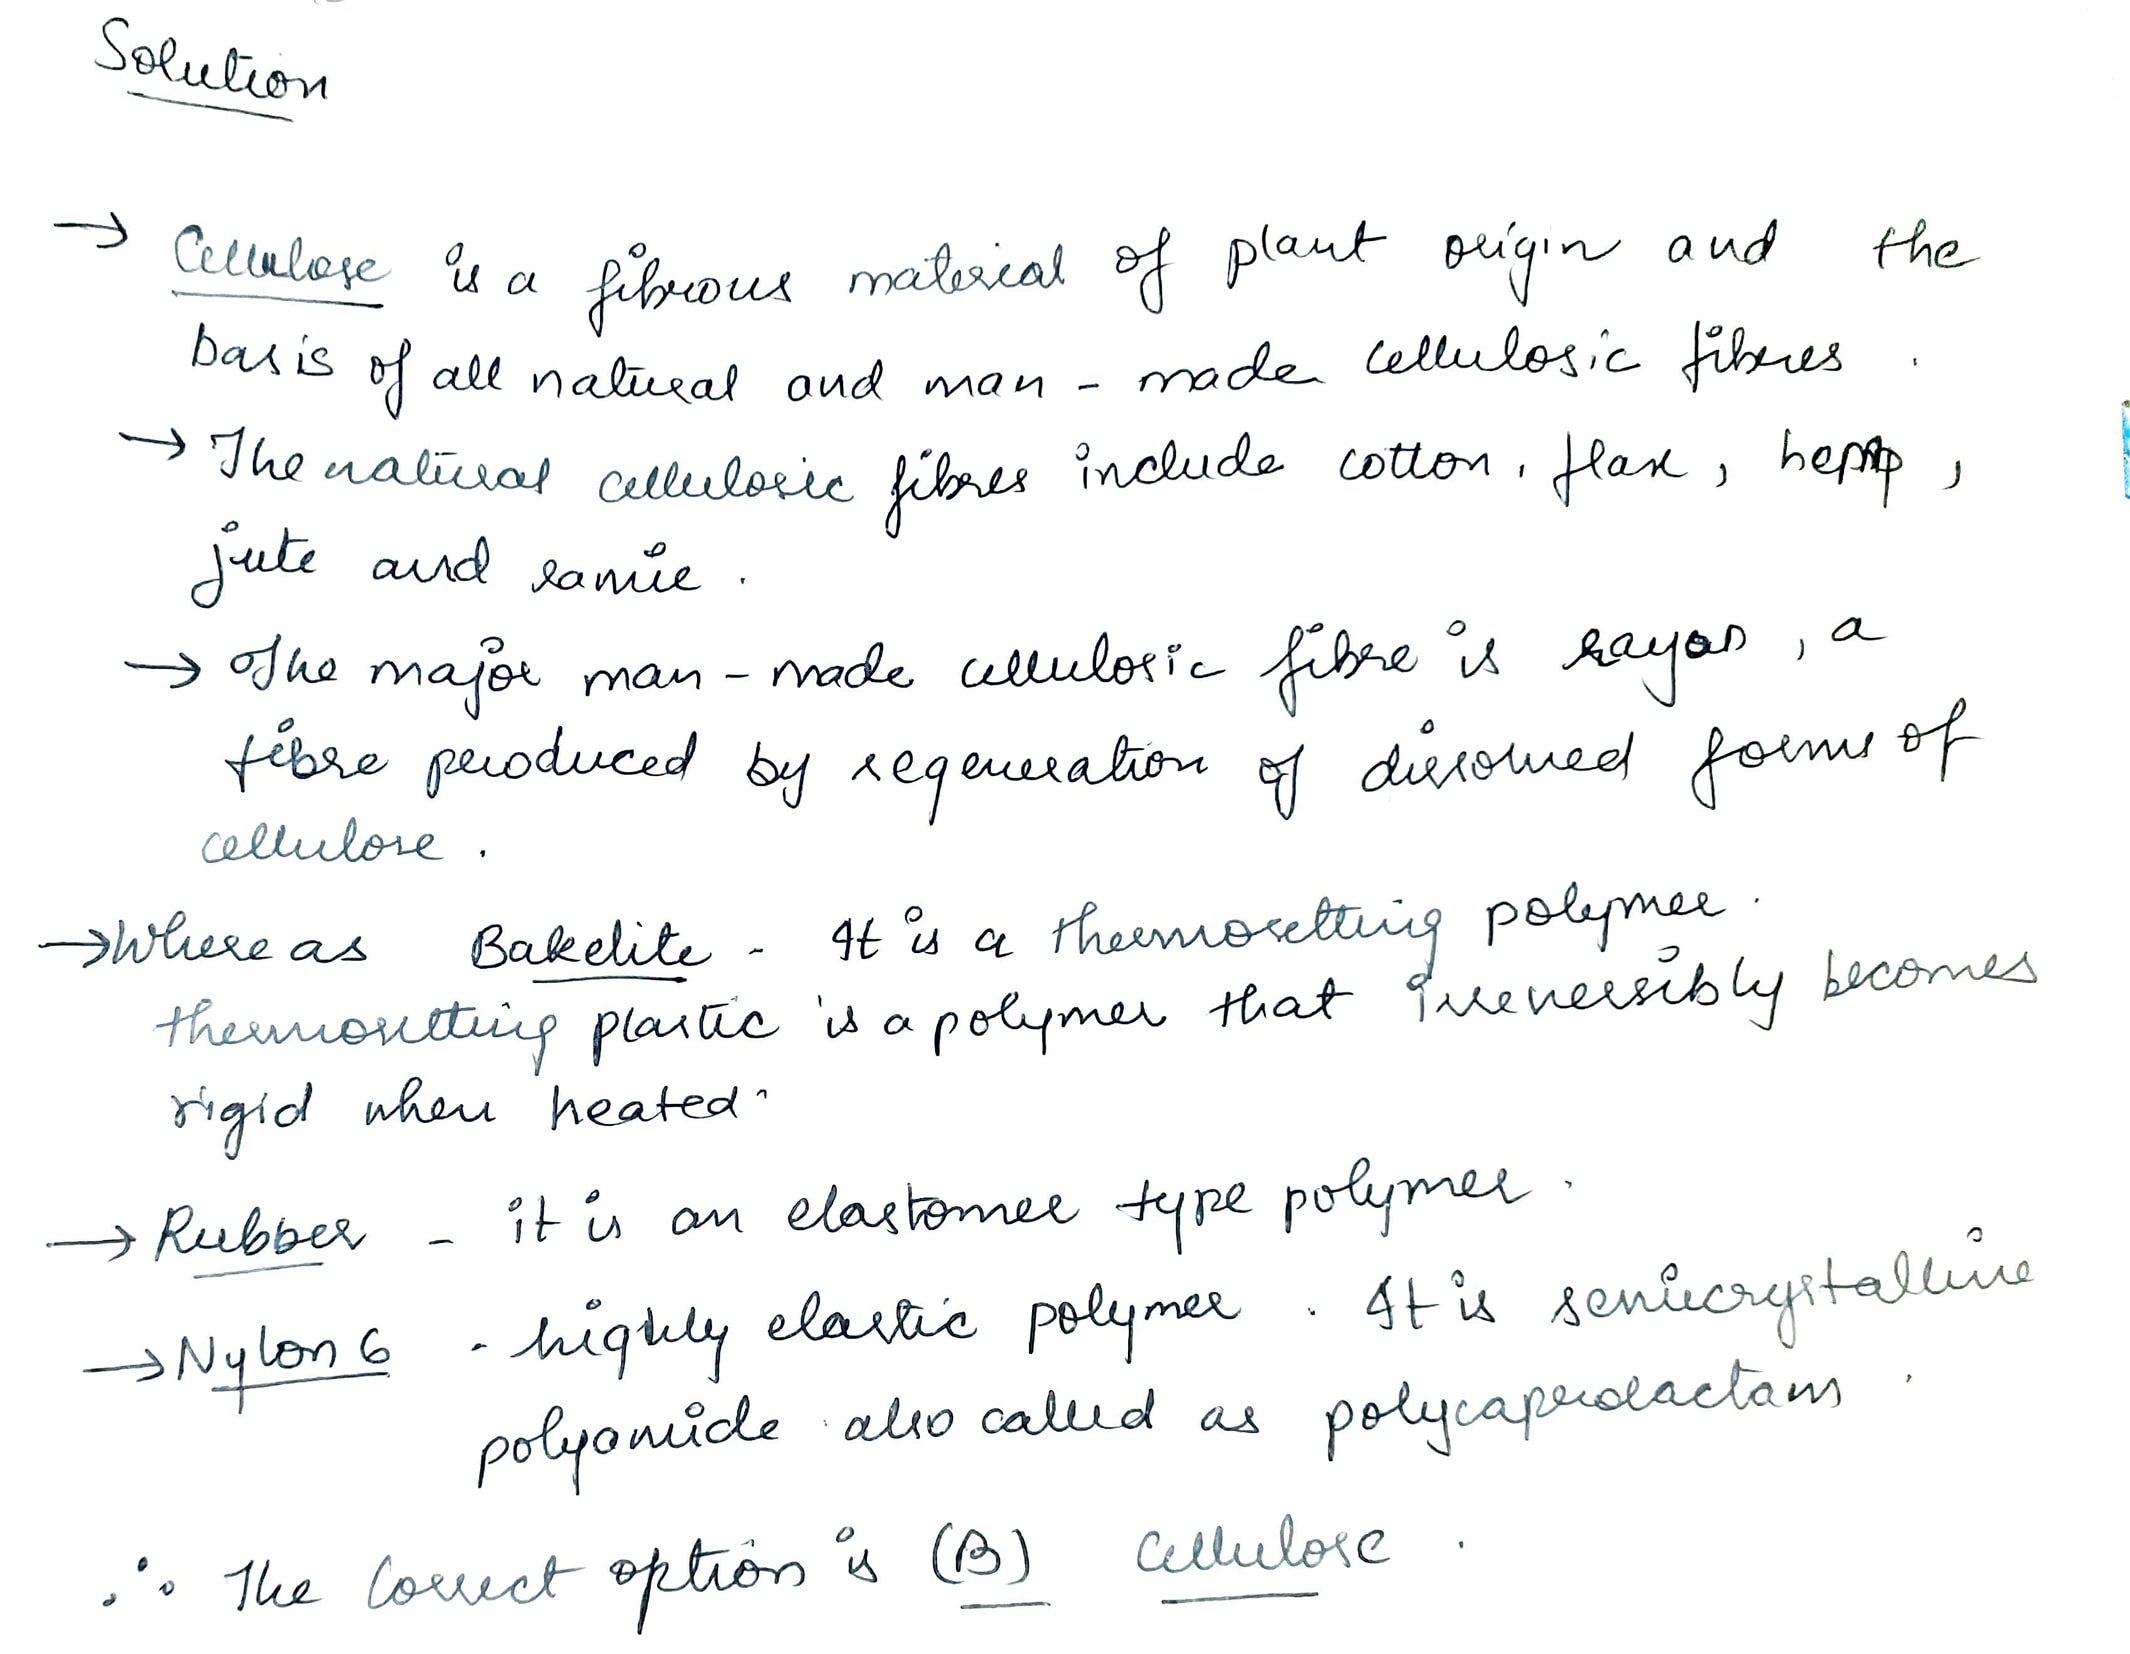 Solution
→ Cellulose is a fibrous material of plant origin and the
basis of all natural and man - made cellulosic fibres .
→ The natural cellulosic fibres include cotton , flax , hemp ,
jute and ramie .
→ The major man - made cellulosic fibre is rayon , a
fibre produced by regeneration of dissolved forms of
cellulose .
→ Where as Bakelite - It is a thermosetting polymer .
thermosetting plastic is a polymer that irreversibly becomes
rigid when heated .
→ Rubber - it is an elastomer type polymer .
→ Nylon 6 - highly elastic polymer . It is semicrystalline
polyamide also called as polycaprolactam .
∴ The correct option is (B) Cellulose .